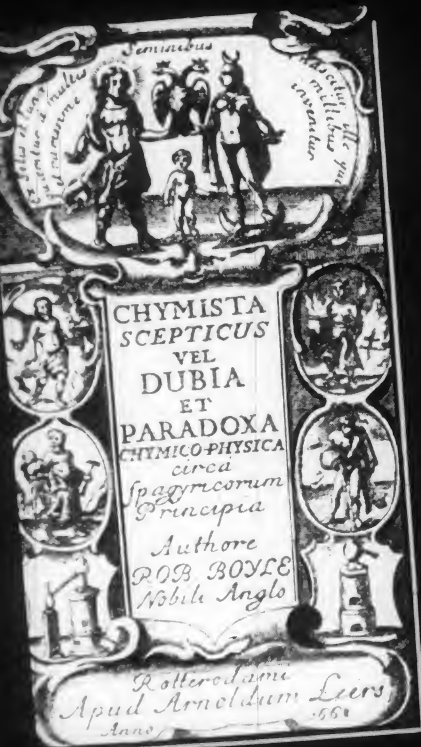 Seminibus
multis
Nascitur ille qui
millibus
invenitur
CHYMISTA
SCEPTICUS
VEL
DUBIA
ET
PARADOXA
CHYMICO-PHYSICA
circa
Spagyricorum
Principia
Authore
ROB. BOYLE
Nobili Anglo
Rotterodami
Apud Arnoldum Leers
Anno